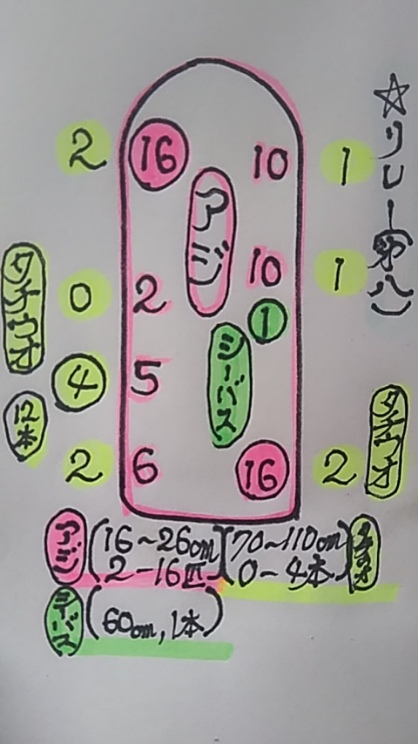 ☆リレー第八)
2 16 10 1
アジ
10 1
タチウオ 0 2
1
シーバス
4 5
12本
タチウオ
2 6 16 2
アジ (16~26cm)(70~110cm) タチウオ
2-16匹 0~4本
シーバス (60cm,1本)